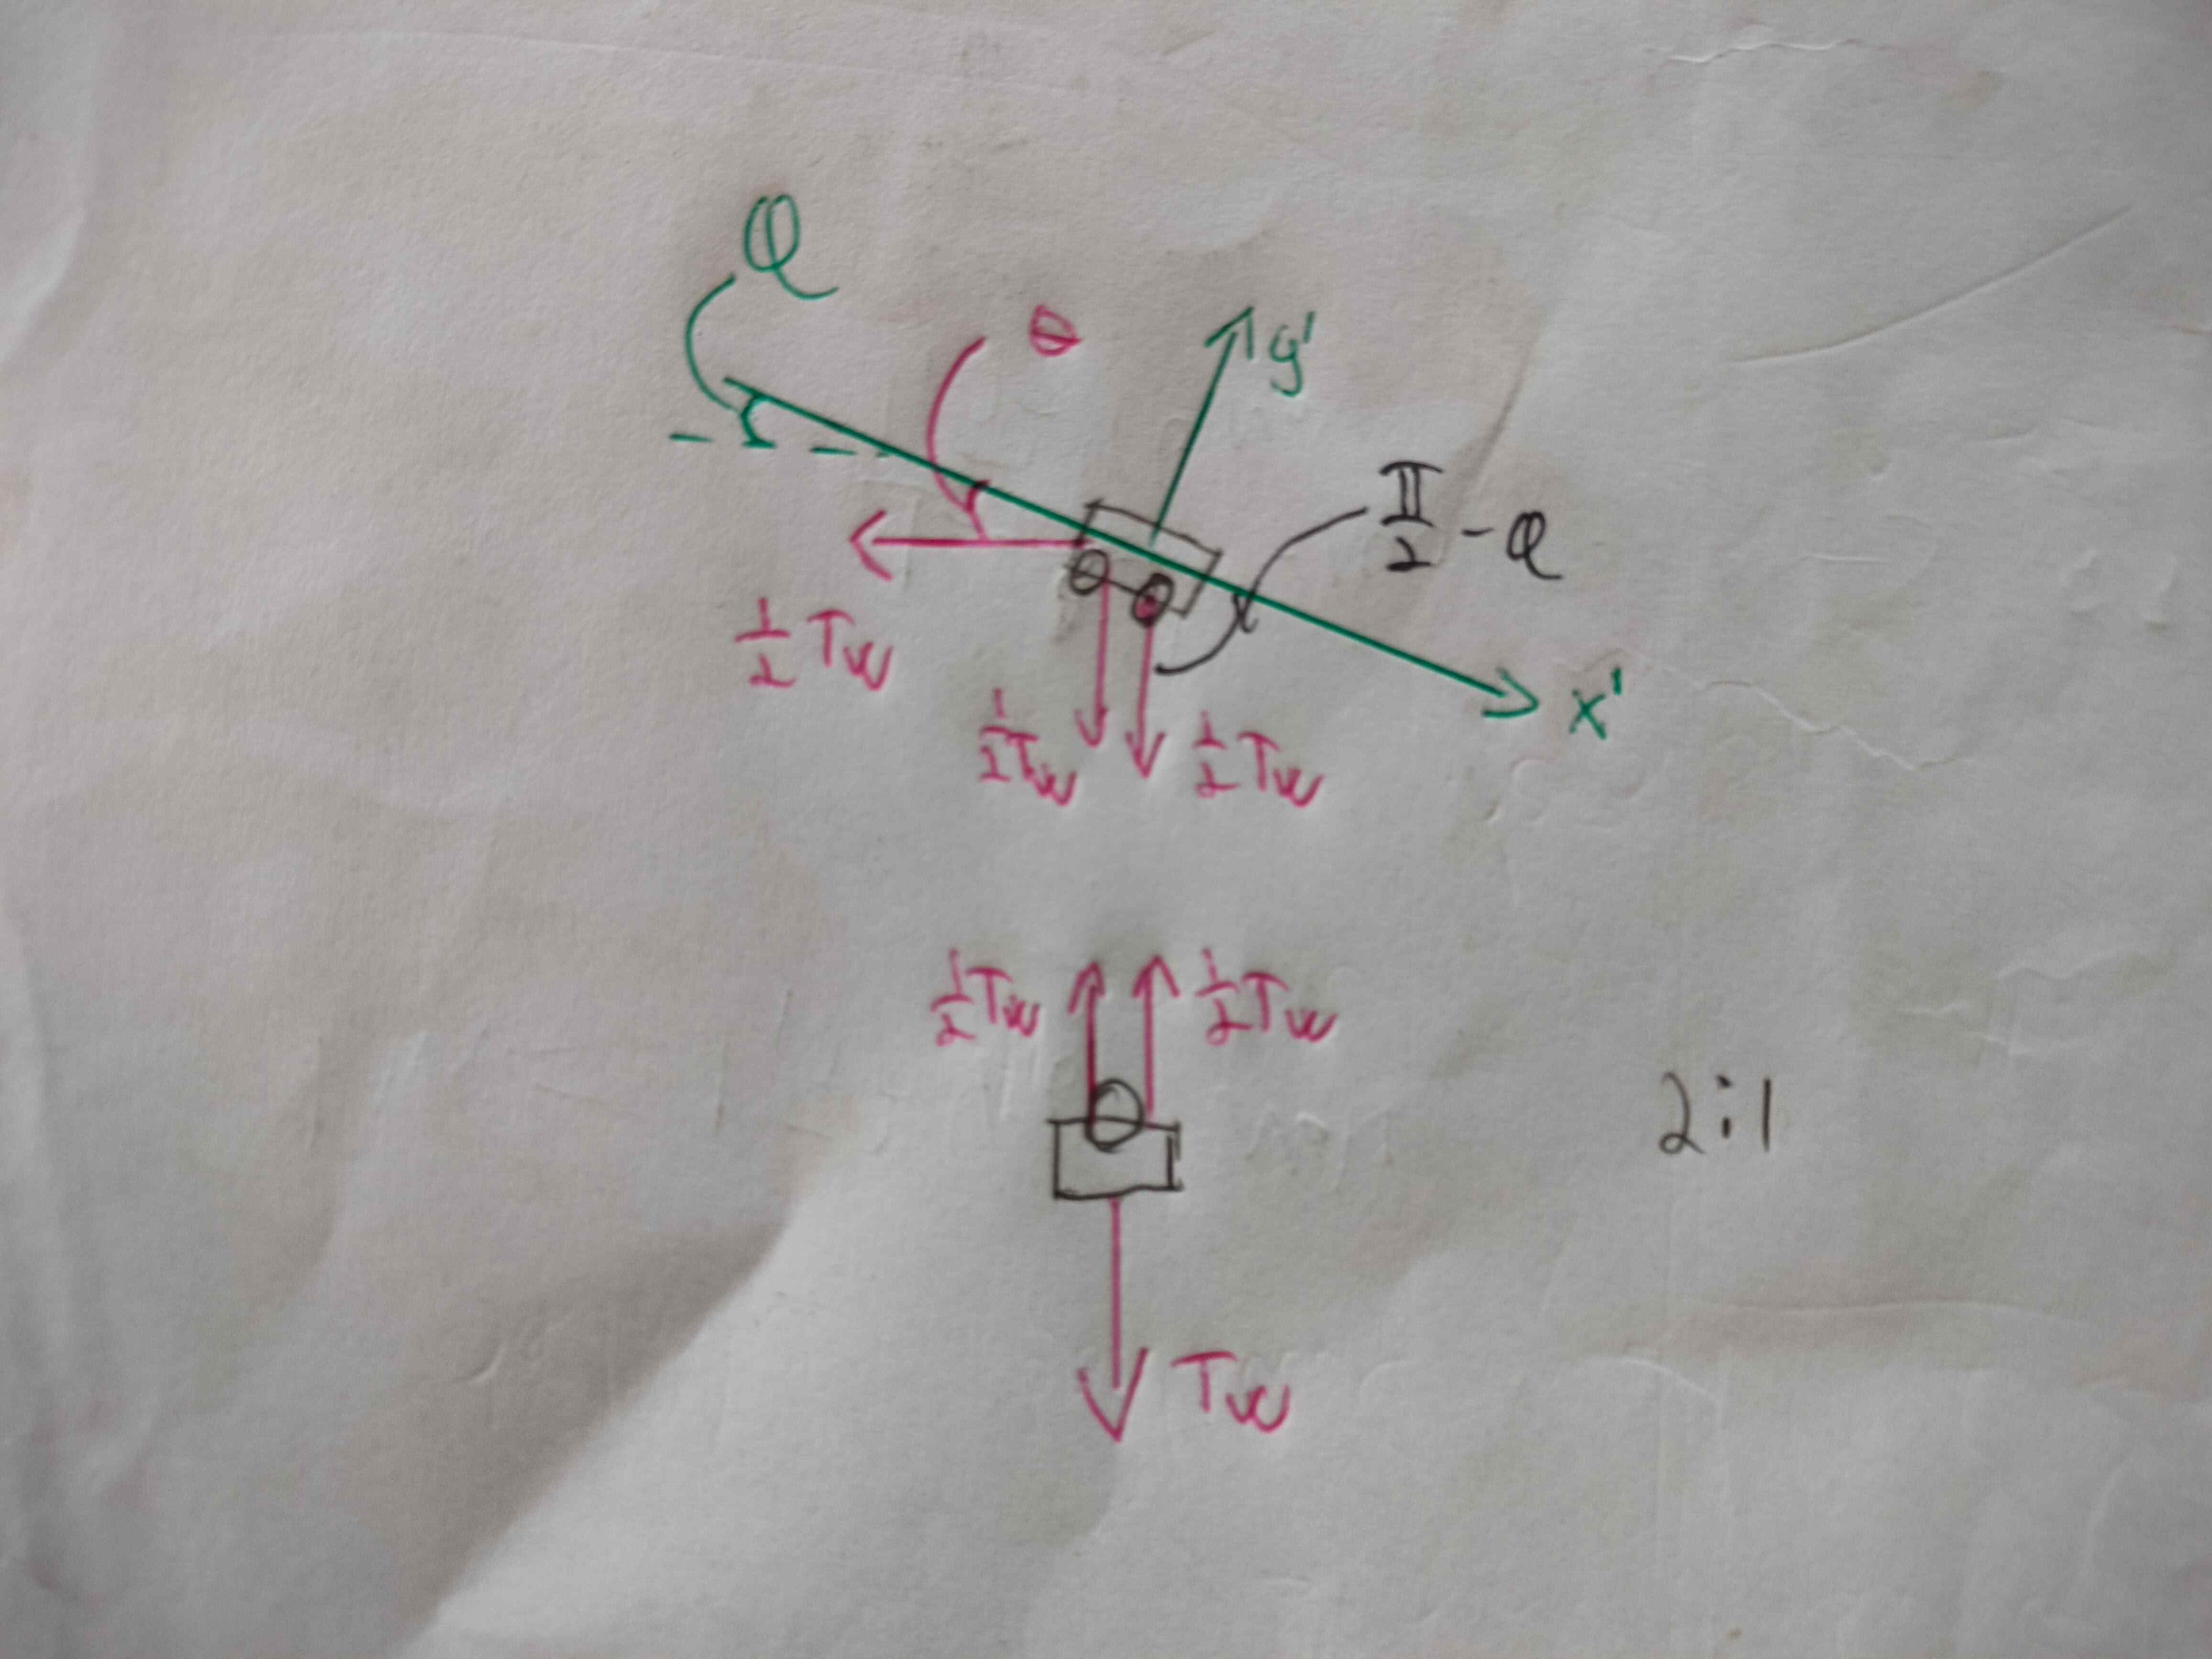 φ
θ
y'
π/2 - φ
1/2 Tw
x'
1/2 Tw
1/2 Tw
1/2 Tw
1/2 Tw
2:1
Tw